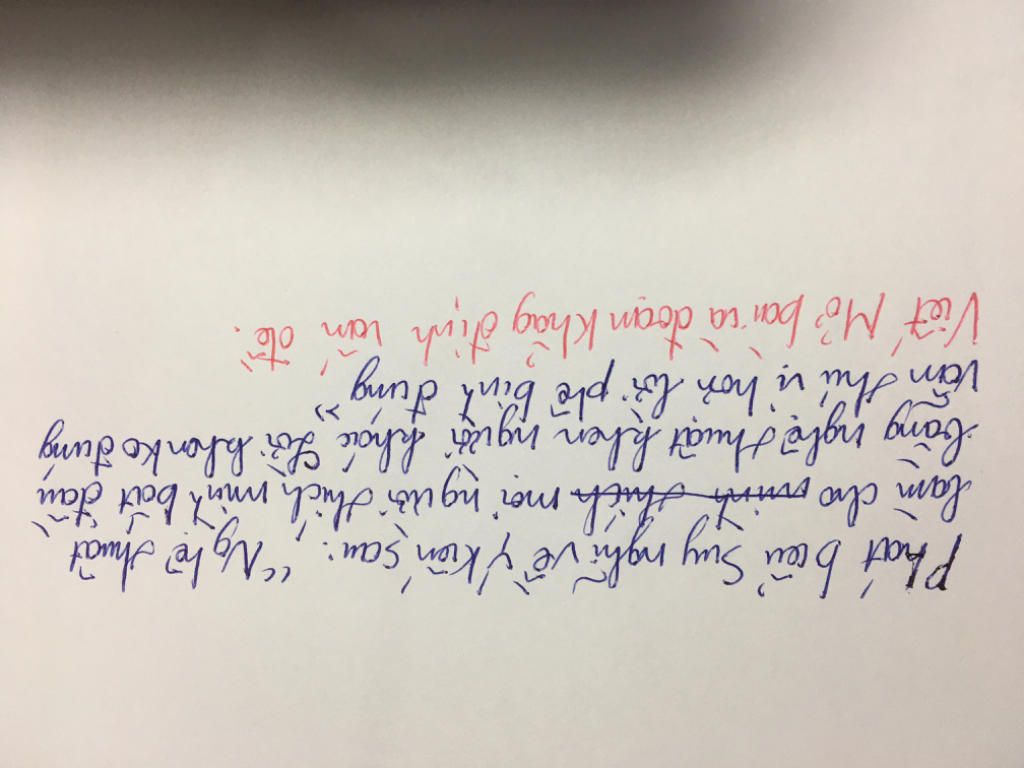 Phát biểu suy nghĩ về ý kiến sau: "Nghệ thuật
làm cho mình thích mọi người thích mình bắt đầu
bằng nghệ thuật khen người khác lời khen ko đúng
vẫn thú vị hơn lời phê bình đúng"
Viết Mở bài và đoạn khẳg định vấn đề.